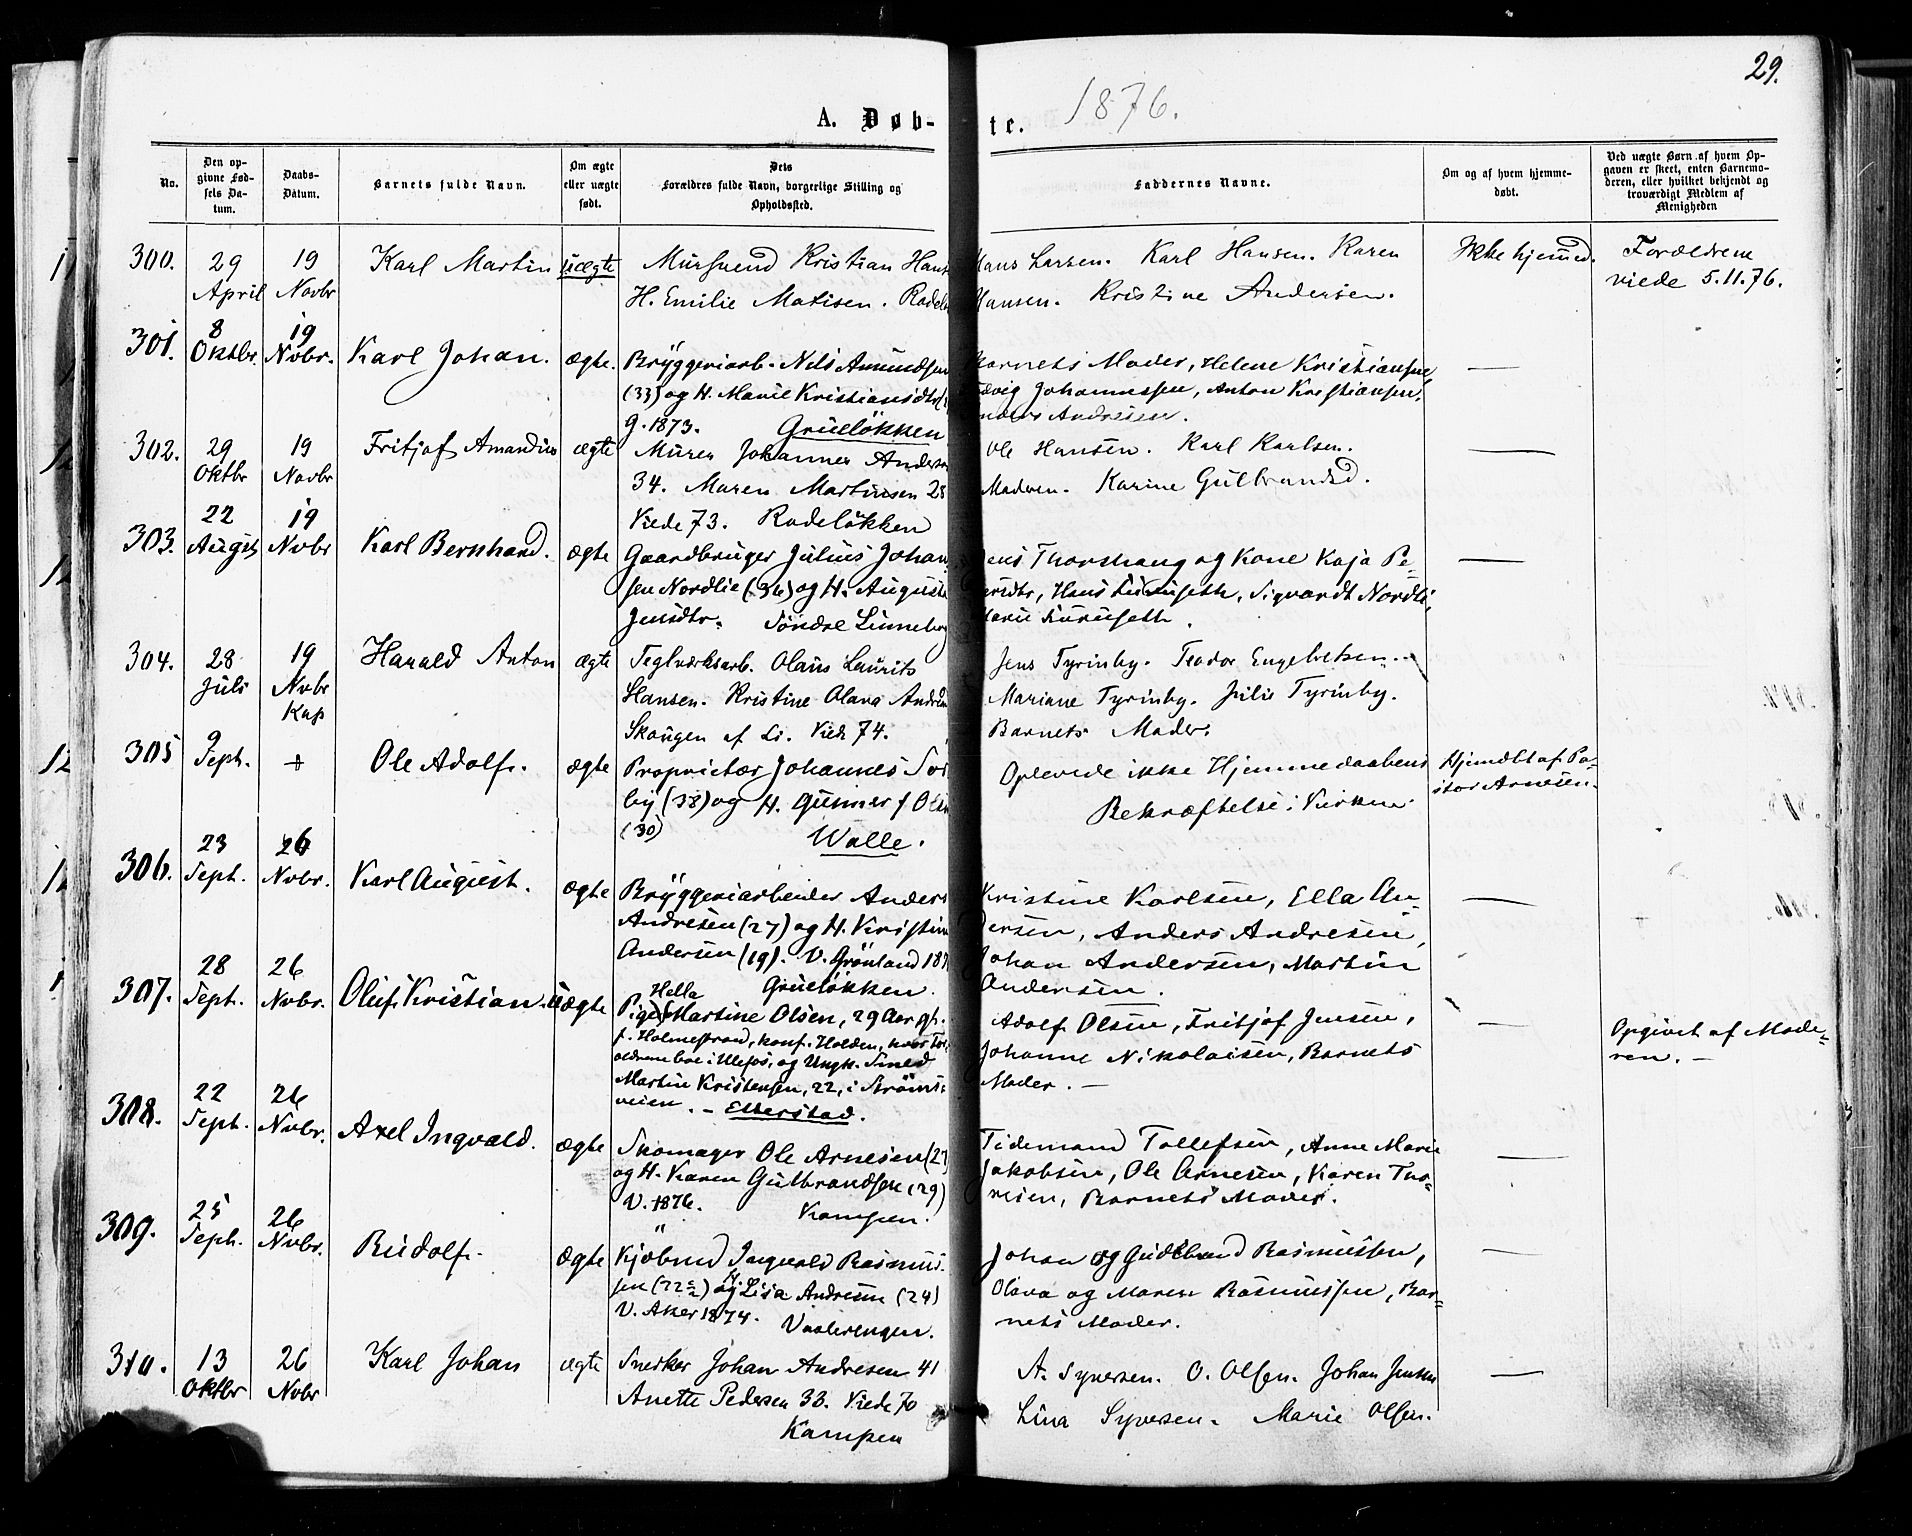 29.
1876.
A. Døb-
te.
No.
Den op-
givne Fød-
sels Da-
tum.
Daabs-
Datum.
Barnets fulde Navn.
Om ægte
eller uægte
født.
Dets
Forældres fulde Navn, borgerlige Stilling og
Opholdssted.
Faddernes Navne.
Om og af hvem hjemme-
døbt.
Ved uægte Børn af hvem Op-
gaven er skeet, enten Barnemo-
deren, eller hvilket bekjendt og
troværdigt Medlem af
Menigheden
300.
29
April
19
Novbr
Karl Martin
uægte
Mursvend Kristian Hans
H. Emilie Matisen. Rodel
Hans Larsen. Karl Hansen. Karen
Hansen. Kristine Andersen.
Ikke hjemmed.
Forældrene
viede 5.11.76.
301.
8
Oktbr.
19
Novbr.
Karl Johan.
ægte.
Bryggeriarb. Nils Amundsen
(33) og H. Marie Kristiansdtr
g. 1873. Grueløkken
Barnets Moder, Helene Kristiansen,
Johannessen, Anton Kristiansen,
Andresen.
—
302.
29
Oktbr
19
Novbr
Fritjof Amandus
ægte
Murer Johannes Anders
34. Maren Martinsen 28
Viede 73. Rodeløkken
Ole Hansen. Karl Karlsen.
Moderen. Karine Gulbrandsd.
—
303.
22
Augst
19
Nvbr
Karl Bernhard.
ægte
Gaardbruger Julius Johan-
sen Nordlie (36) og H. Auguste
Jensdtr. Søndre Linneberg
Jens Thorshaug og Kone Kaja Pe-
Hans Sigvardt Nordli,
Marie
—
304.
28
Juli
19
Nvbr
Kap
Harald Anton
ægte
Teglværksarb. Olaus Laurits
Hansen. Kristine Olava Andr
Skougen af Li. Vied 74.
Jens Tyrinby. Teodor Engebretsen.
Mariane Tyrinby. Julie Tyrinby.
Barnets Moder.
305
9
Septb.
+
Ole Adolf.
ægte
Proprietær Johannes Sør
by (38) og H. Gunner f. Olsn
(30)
Walle.
Oplevede ikke Hjemmedaabens
Bekræftelse i Kirken.
Hjemdbt af Pa-
stor Arnesen.
306.
23
Septb.
26
Nvbr.
Karl August.
ægte
Bryggeriarbeider Anders
Andresen (27) og H. Kristine
Andersen (19). V. Grønland 187
Grueløkken.
Kristine Karlsen, Ella An-
dersen, Anders Andresen,
Johan Andersen, Martin
Andersen.
—
307.
28
Septb.
26
Nvbr.
Oluf Kristian.
uægte
Hella
Pige Martine Olsen, 29 Aar gl.
f. Holmestrand, konf. Holden, hvor For-
ældrene boe i Ulefos, og Ungk. Smed
Martin Kristensen, 22, i Strøms-
veien. – Etterstad.
Adolf Olsen, Fritjof Jensen,
Johanne Nikolaisen, Barnets
Moder. —
—
Opgivet af Mode-
ren. —
308.
22
Septb.
26
Nvbr.
Axel Ingvald.
ægte
Skomager Ole Arnesen (27
og H. Karen Gulbrandsen (29)
V. 1876. Kampen.
Tidemand Tollefsen, Anne Marie
Jakobsen, Ole Arnesen, Karen Tho-
resen, Barnets Moder.
—
309.
25
Septb.
26
Nvbr.
Rudolf.
ægte
Kjøbmd Ingvald Rasmus-
sen (22) og H. Lisa Andresen (24)
V. Aker 1874. Vaalerengen.
Johan og Gudbrand Rasmussen,
Olava og Maren Rasmussen, Bar-
nets Moder.
—
310.
13
Oktbr
26
Nvbr
Karl Johan
ægte
Snekker Johan Andresen 41
Anette Pedersen 33. Viede 70
Kampen
A. Syversen. O. Olsen. Johan Jensen
Lina Syversen. Marie Olsen.
—